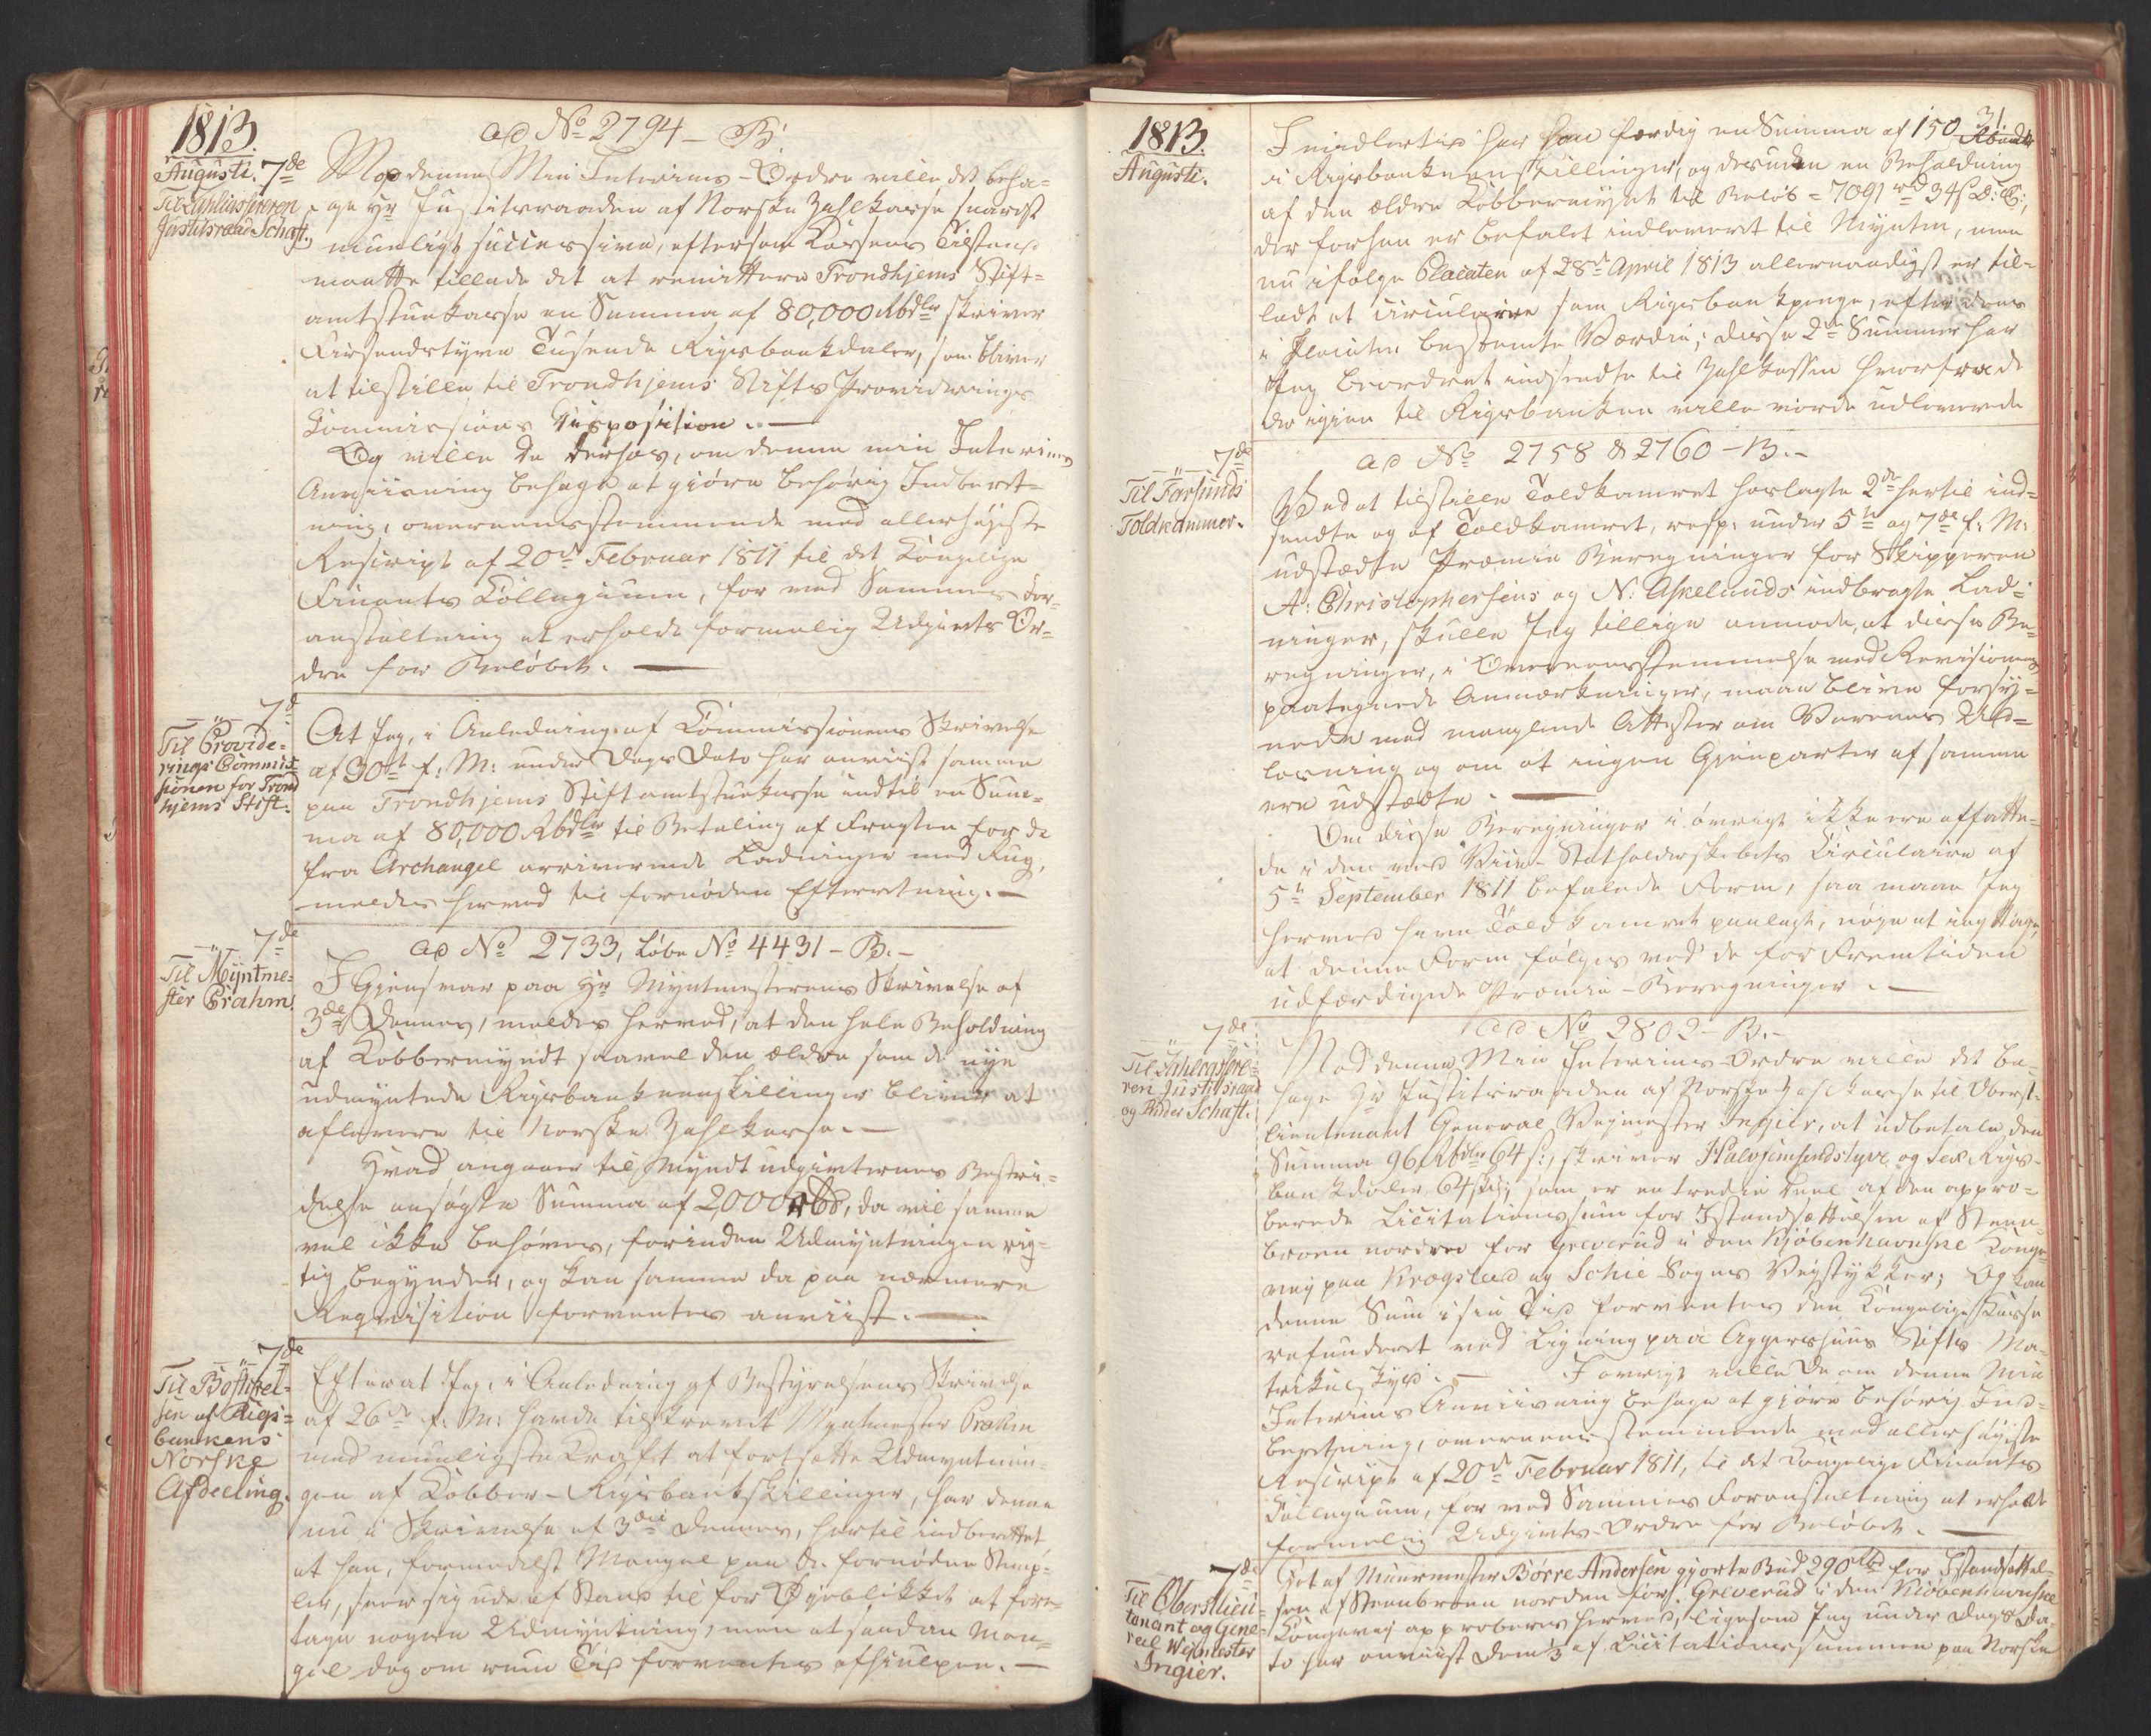 1813.
Augusti. 7de
Til Zahlkassereren
Justitsraad Schaft.
ad No 2794 – B.
Mod denne Min Interims-Ordre ville det beha-
ge Hr Justitsraaden af Norske Zahlkasse snarest
mueligt successive, eftersom Kassens Tilstand
maatte tillade det at remittere Trondhjems Stift-
amtstuekasse en Summa af 80,000 Rbdlr skriver
Firsendstyve Tusende Rigsbankdaler, som bliver
at tilstille til Trondhjems Stifts Provideerings
Commissions Disposition. –
Og ville De derhos, om denne min Interims
Anviisning behage at gjøre behørig Indberet-
ning, overeensstemmende med allerhøjeste
Rescript af 20de Februar 1811 til det Kongelige
Finants Collegium, for ved Sammes For-
anstaltning at erholde formelig Udgivts Or-
dre for Beløbet. –
7de
Til Provide-
rings Commis-
sionen for Trond
hjems Stift.
At jeg, i Anledning af Commissionens Skrivelse
af 30te f: M: under Dags Dato har anviist samme
paa Trondhjems Stiftamtstuekasse indtil en Sum-
ma af 80,000 Rbdlr til Betaling af Fragten for de
fra Archangel arriverende Ladninger med Rug,
meldes herved til fornøden Efterretning. –
7de
Til Myntme-
ster Prahm.
ad No 2733, Løbe No 4431 – B. –
I Giensvar paa Hr Myntmesterens Skrivelse af
3de Dennes, meldes herved, at den hele Beholdning
af Kobbermyndt saavel den ældre som de nye
udmyntede Rigsbankeenskillinger bliver at
aflevere til Norske Zahlkasse. –
Hvad angaaer til Myndtudgivternes Bestri-
delse ansøgte Summa af 2000 rbd, da vil samme
vel ikke behøves, forinden Udmyntningen rig-
tig begynder, og kan samme da paa nærmere
Reqvisition forventes anviist. –
7de
Til Bestyrel-
sen af Rigs-
bankens
Norske
Afdeeling.
Efterat Jeg, i Anledning af Bestyrelsens Skrivelse
af 26de f: M: havde tilskrevet Myntmester Prahm
med mueligste Kraft at fortsætte Udmyntnin-
gen af Kobber-Rigsbankskillinger, har denne
nu i Skrivelse af 3die Dennes, hertil indberettet
at han, formedelst Mangel paa de fornødne Stemp-
ler, seer sig ude af Stand til for Øyeblikket at fore-
tage nogen Udmyntning, men at saadan Man-
gel dog om rum Tid forventes afhiulpen. –
31.
1813.
Augusti.
Imidlertid har han færdig en Summa af 150 Rbdlr
i Rigsbankeenskillinger, og desuden en Beholdning
af den ældre Kobbermynt til Beløb = 7091 rd 34 s D: C:,
der forhen er befalet indleveret til Mynten, men
nu ifølge Placaten af 28de April 1813 allernaadigst er til-
ladt at circulere som Rigsbankpenge, efter deres
i Placaten bestemte Værdie; disse 2de Summer har
Jeg beordret indsendte til Zahlkassen hvorfra de
da igien til Rigsbanken ville vorde udleverede
7de
Til Farsunds
Toldkammer.
ad No 2758 & 2760 – B. –
Ved at tilstille Toldkamret hoslagte 2de hertil ind-
sendte og af Toldkamret, resp: under 5te og 7de f: M:
udstædte Præmie Beregninger for Skipperen
A: Christophersens og N: Askelunds indbragte Lad-
ninger, skulle Jeg tillige anmode, at disse Be-
regninger, i Overeensstemmelse med Revisionens
paategnede Anmærkninger, maae blive forsy-
nede med manglende Attester om Varenes Ud-
losning og om at ingen Gjenparter af samme
ere udstædte. –
Om disse Beregninger i øvrigt ikke ere affatte-
de i den ved Vice-Statholderskabets Circulaire af
5te September 1811 befalede Form, saa maae Jeg
herved have Toldkamret paalagt, nøye at iagttage,
at denne Form følges ved de for Fremtiden
udfærdigede Præmie-Beregninger. –
7de
Til Zahlkassere-
ren Justitsraad
og Ridder Schaft.
ad No 2802 – B. –
Mod denne Min Interims-Ordre ville det be-
hage Hr Justitsraaden af Norske Zahlkasse til Oberst-
lieutenant General Vejmester Ingier, at udbetale den
Summa 96 Rbdlr 64 s:, skriver Halvfemsendstyve og Sex Rigs-
bankdaler 64 sk; som er en tredie Deel af den appro-
berede Licitationssum for Istandsættelsen af Steen-
broen norden for Greverud i den Kjøbenhavnske Konge-
vej paa Krogstad og Schie Sognes Vejstykker; Og kan
denne Sum i sin Tid forventes den Kongelige Kasse
refunderet ved Ligning paa Aggershuus Stifts Ma-
trikulskyld. – I øvrigt ville De om denne Min
Interims Anviisning behage at gjøre behørig Ind-
beretning, overeensstemmende med allerhøjeste
Rescript af 20de Februar 1811, til det Kongelige Finants
Collegium, for ved Sammes Foranstaltning at erholde
formelig Udgivts-Ordre for Beløbet. –
7de
Til Oberstlieu-
tenant og Gene-
ral Vejmester
Ingier.
Det af Muurmester Børre Andersen gjorte Bud 290 rbd for Istandsættel-
sen af Steenbroen norden for Greverud i den Kiøbenhavnske
Kongevej approberes herved, ligesom Jeg under Dags Da-
to har anviist Dem 1/3 af Licitationssummen paa Norske